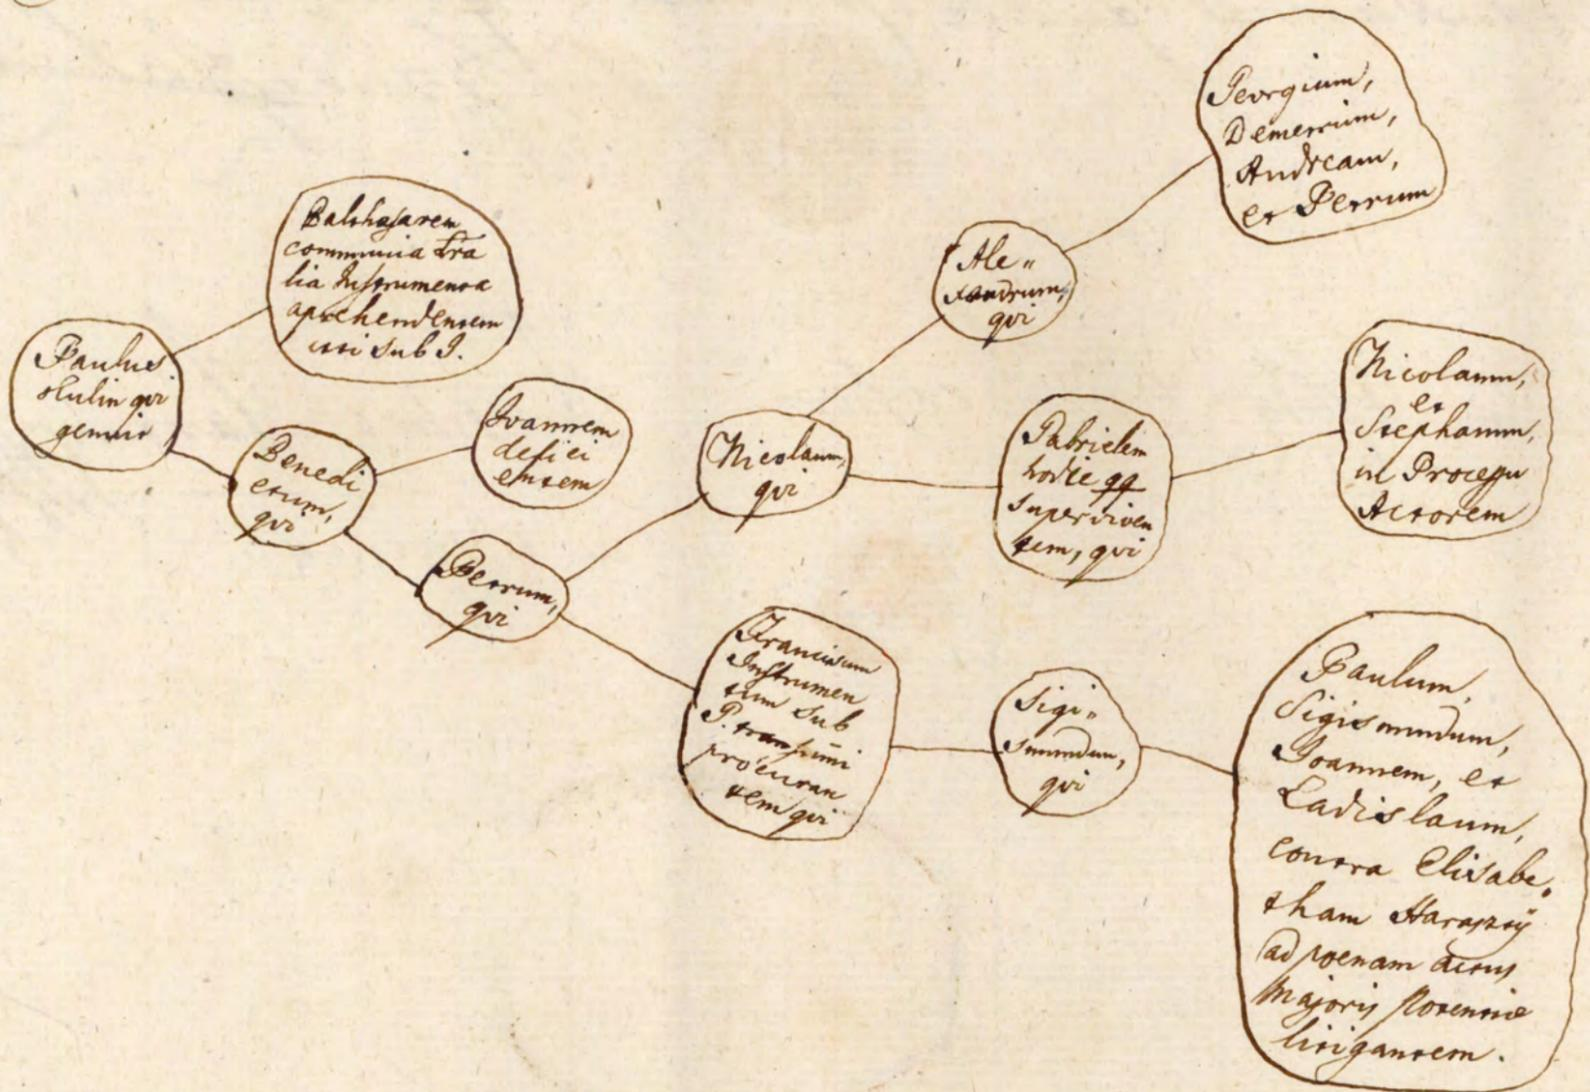 Paulus
Hulin qvi
genuit
Balthasarem
communia Lra
lia Instrumenta
aprehendentem
uti sub I.
Benedi
ctum,
qvi
Ioannem
defici
entem
Petrum,
qvi
Nicolaum,
qvi
Ale"
xandrum,
qvi
Georgium,
Demetrium,
Andream,
et Petrum
Gabrielem
hodie qq
superviven
tem, qvi
Nicolaum,
et
Stephanum,
in Processu
Actorem
Franciscum
Instrumen
tum sub
P. transumi
procuran
tem qvi
Sigi"
smundum,
qvi
Paulum,
Sigismundum,
Joannem, et
Ladislaum,
contra Elisabe"
tham Haraszÿ
ad poenam actus
majoris potentiæ
litigantem.